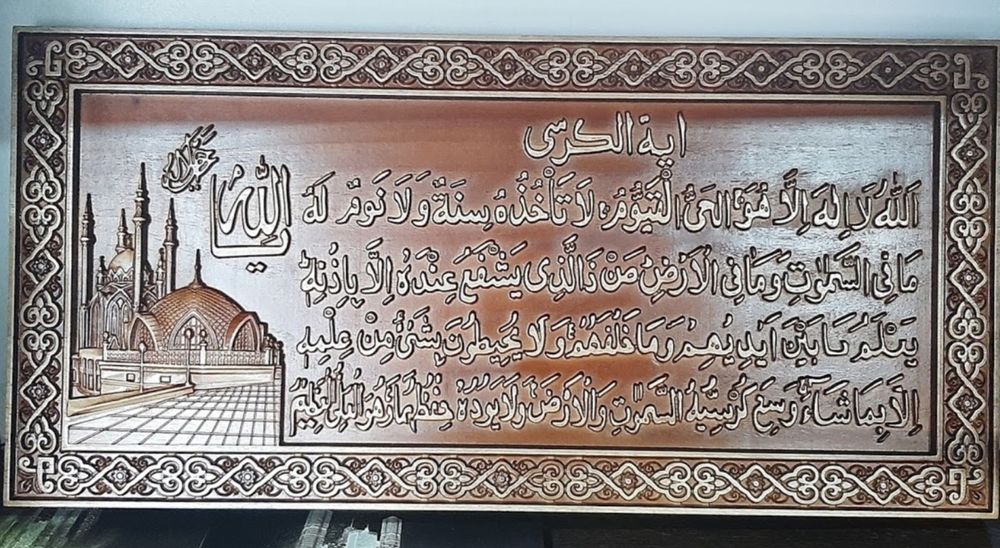 اية الكرسى
اَللّٰهُ لَا اِلٰهَ اِلَّا هُوَ الْحَىُّ الْقَيُّومُ لَا تَأْخُذُهُ سِنَةٌ وَلَا نَوْمٌ لَهُ
مَا فِى السَّمٰوٰتِ وَمَا فِى الْاَرْضِ مَنْ ذَا الَّذِى يَشْفَعُ عِنْدَهُ اِلَّا بِاِذْنِهِ
يَعْلَمُ مَا بَيْنَ اَيْدِيهِمْ وَمَا خَلْفَهُمْ وَلَا يُحِيطُونَ بِشَىْءٍ مِنْ عِلْمِهِ
اِلَّا بِمَا شَاءَ وَسِعَ كُرْسِيُّهُ السَّمٰوٰتِ وَالْاَرْضَ وَلَا يَؤُدُهُ حِفْظُهُمَا وَهُوَ الْعَلِىُّ الْعَظِيمُ
الله
جل جلاله